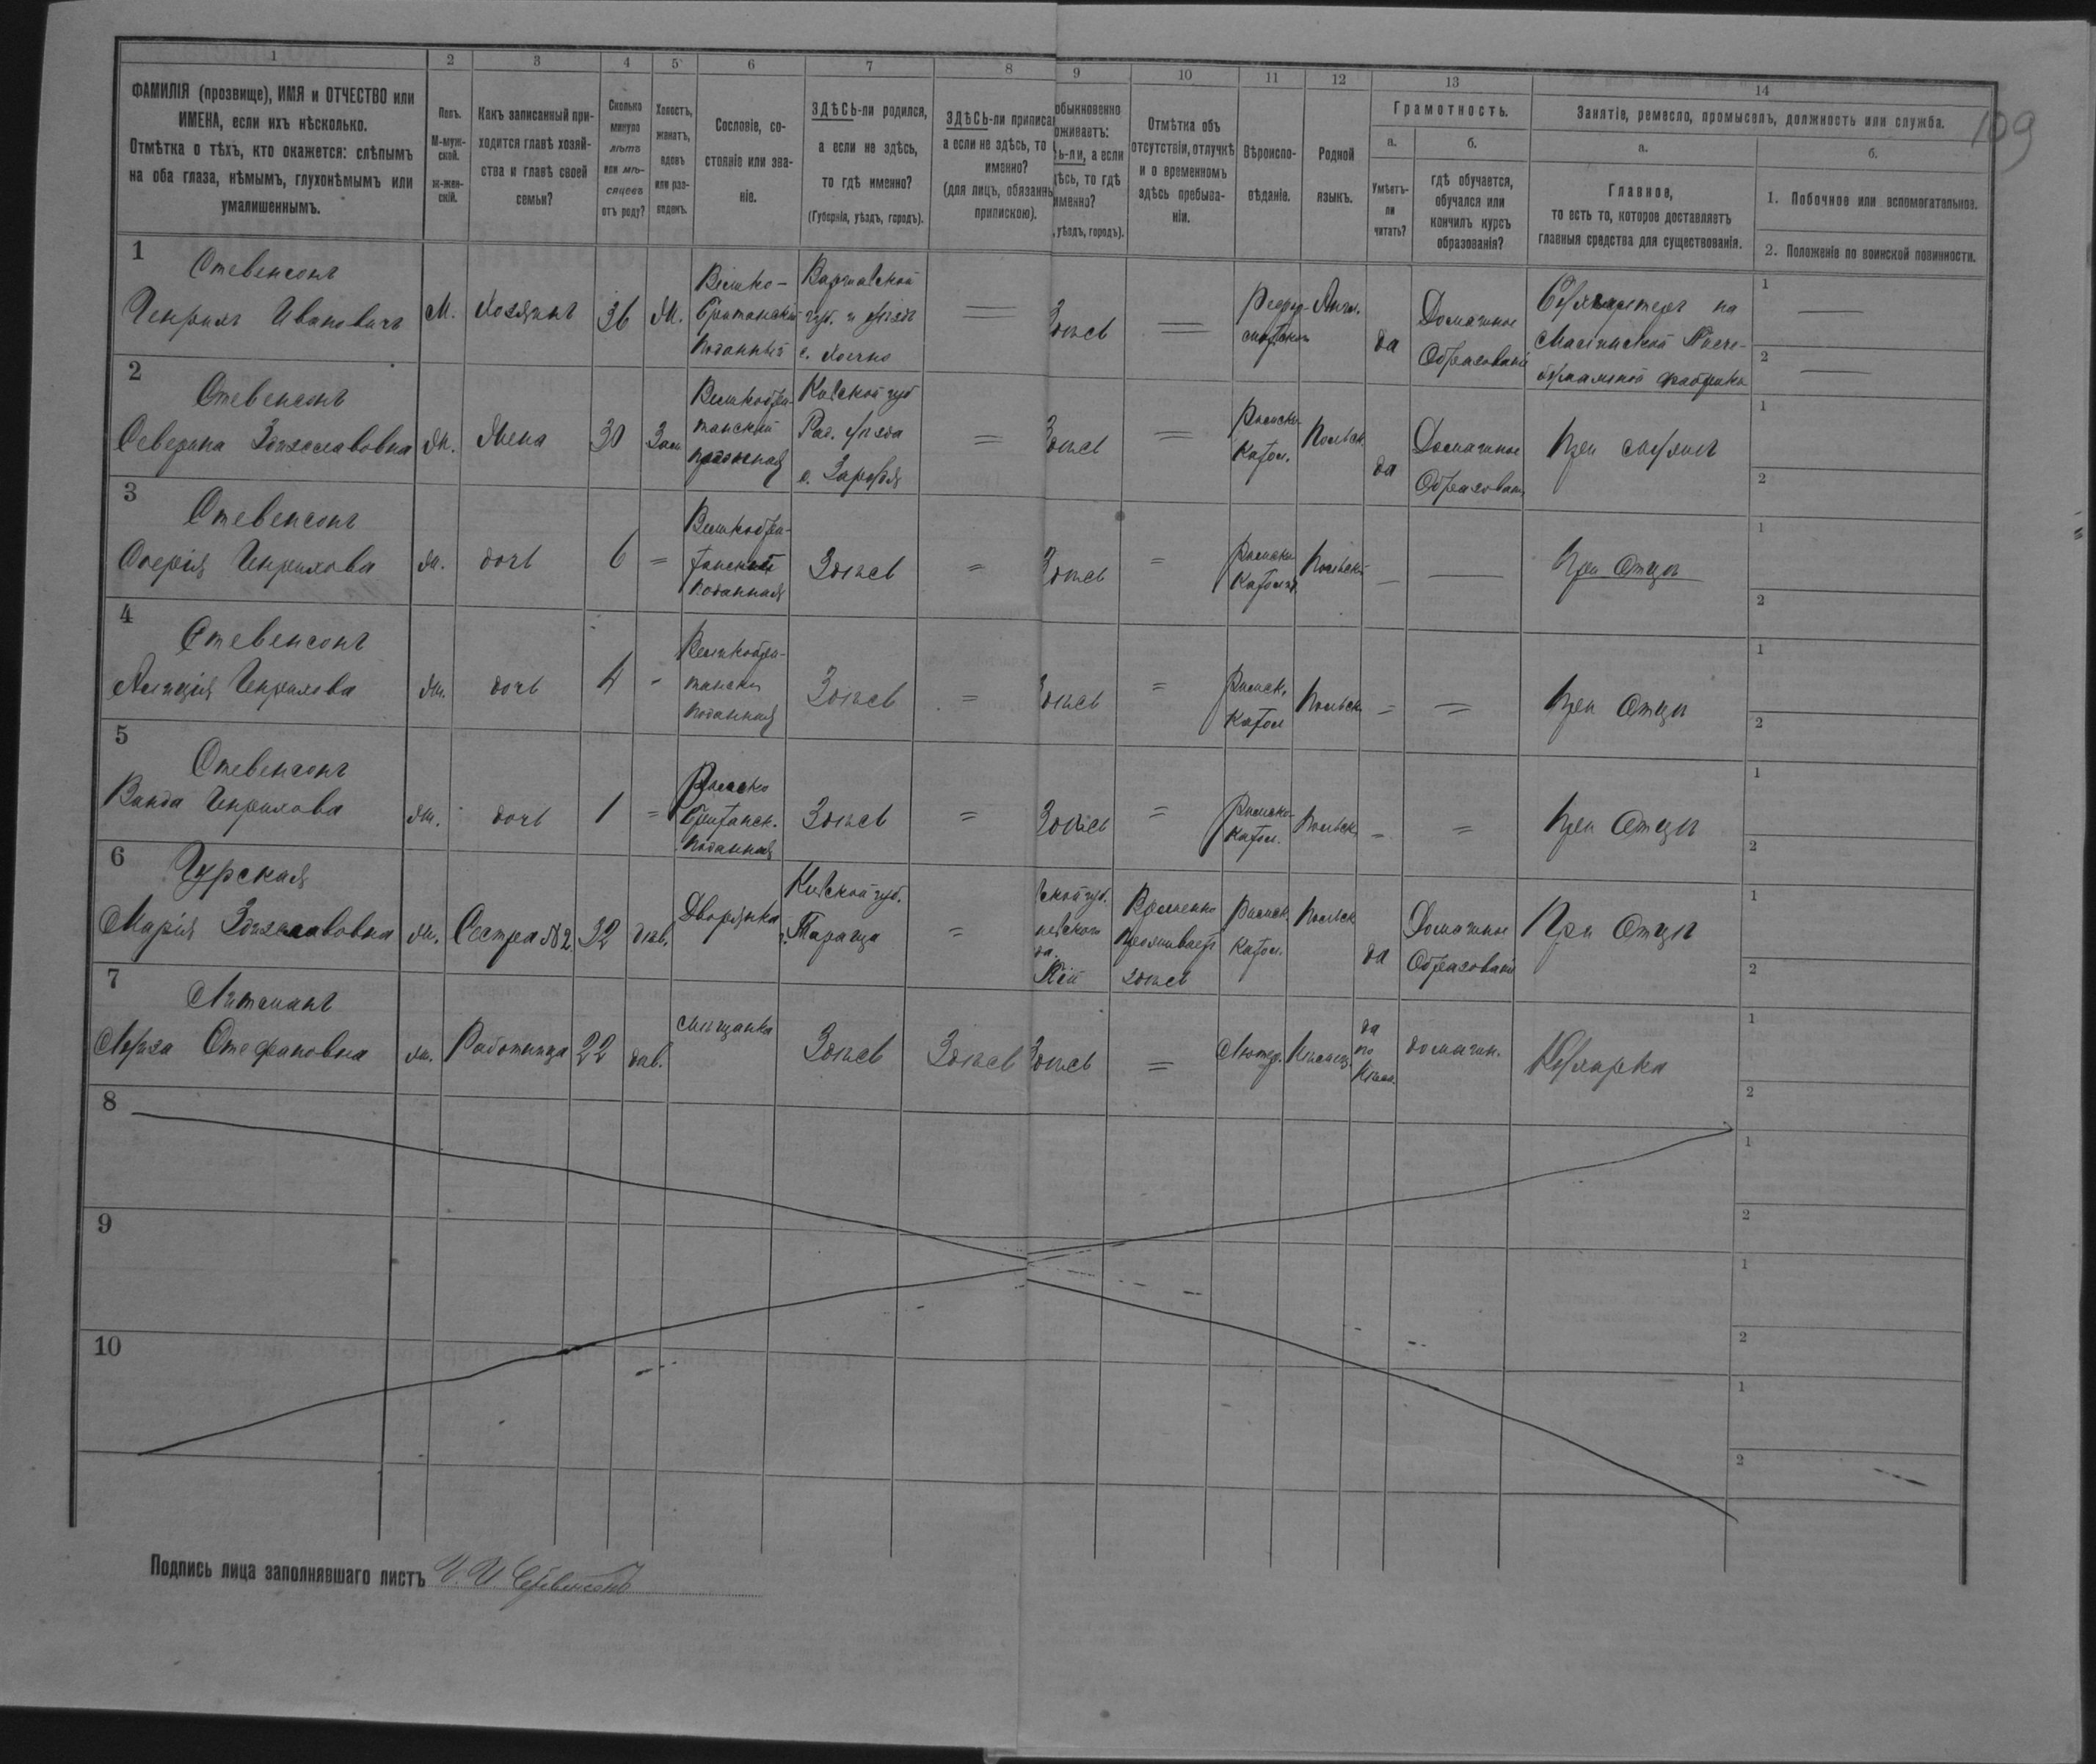 109
1 2 3 4 5 6 7 8 9 10 11 12 13 14
ФАМИЛІЯ (прозвище), ИМЯ и ОТЧЕСТВО или
ИМЕНА, если ихъ нѣсколько.
Отмѣтка о тѣхъ, кто окажется: слѣпымъ
на оба глаза, нѣмымъ, глухонѣмымъ или
умалишеннымъ.
Полъ.
М-муж-
ской.
Ж-жен-
скій.
Какъ записанный при-
ходится главѣ хозяй-
ства и главѣ своей
семьи?
Сколько
минуло
лѣтъ
или мѣ-
сяцевъ
отъ роду?
Холостъ,
женатъ,
вдовъ
или раз-
веденъ.
Сословіе, со-
стояніе или зва-
ніе.
ЗДѢСЬ-ли родился,
а если не здѣсь,
то гдѣ именно?
(Губернія, уѣздъ, городъ).
ЗДѢСЬ-ли приписа
а если не здѣсь, то
именно?
(для лицъ, обязаннь
припискою).
обыкновенно
оживаетъ:
ь-ли, а если
дѣсь, то гдѣ
именно?
, уѣздъ, городъ).
Отмѣтка объ
отсутствіи, отлучкѣ
и о временномъ
здѣсь пребыва-
ніи.
Вѣроиспо-
вѣданіе.
Родной
языкъ.
Грамотность.
а.
Умѣетъ-
ли
читать?
б.
гдѣ обучается,
обучался или
кончилъ курсъ
образованія?
Занятіе, ремесло, промыселъ, должность или служба.
а.
Главное,
то есть то, которое доставляетъ
главныя средства для существованія.
б.
1. Побочное или вспомогательное.
2. Положеніе по воинской повинности.
1
Стевенсонъ
Генрихъ Ивановичъ
М.
Хозяинъ
36
Ж.
Велико-
Британскій
подданный
Варшавской
губ. и уѣзда
Здѣсь
Англ.
да
Домашнее
Образованіе
Бухгалтеръ на
1
2
2
Стевенсонъ
Северина Здзиславовна
Ж.
Жена
30
Зам.
Великобри-
танская
подданная
Кіевской губ
Рад. уѣзда
Здѣсь
Римско
Катол.
Польск.
да
Домашнее
Образован.
При мужѣ
1
2
3
Стевенсонъ
Генрихова
ж.
дочь
6
Великобри-
танская
подданная
Здѣсь
Здѣсь
Римско
Катол.
Польскій
При Отцѣ
1
2
4
Стевенсонъ
Алиція Генрихова
ж.
дочь
4
Великобри-
танская
подданная
Здѣсь
Здѣсь
Римск.
Катол
Польск.
При Отцѣ
1
2
5
Стевенсонъ
Ванда Генрихова
ж.
дочь
1
Британск.
подданная
Здѣсь
Здѣсь
Римско-
Катол.
Польск.
При Отцѣ
1
2
6
Гурская
Марія Здзиславовна
ж.
Сестра №2.
32
дѣв.
Дворянка
Кіевской губ.
г. Тараща
Временно
проживаетъ
здѣсь
Римск.
Катол.
Польск
да
Домашнее
Образованіе
При Отцѣ
1
2
7
Луиза Стефановна
ж.
Работница
22
дѣв.
мѣщанка
Здѣсь
Здѣсь
Здѣсь
Лютер.
Нѣмец.
да
по
Нѣм.
домашн.
Кухарка
1
2
8
1
2
9
1
2
10
1
2
Подпись лица заполнявшаго листъ Г. И. Стевенсонъ